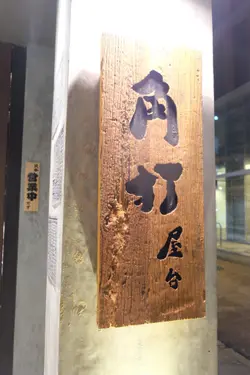 角打
屋台
営業中